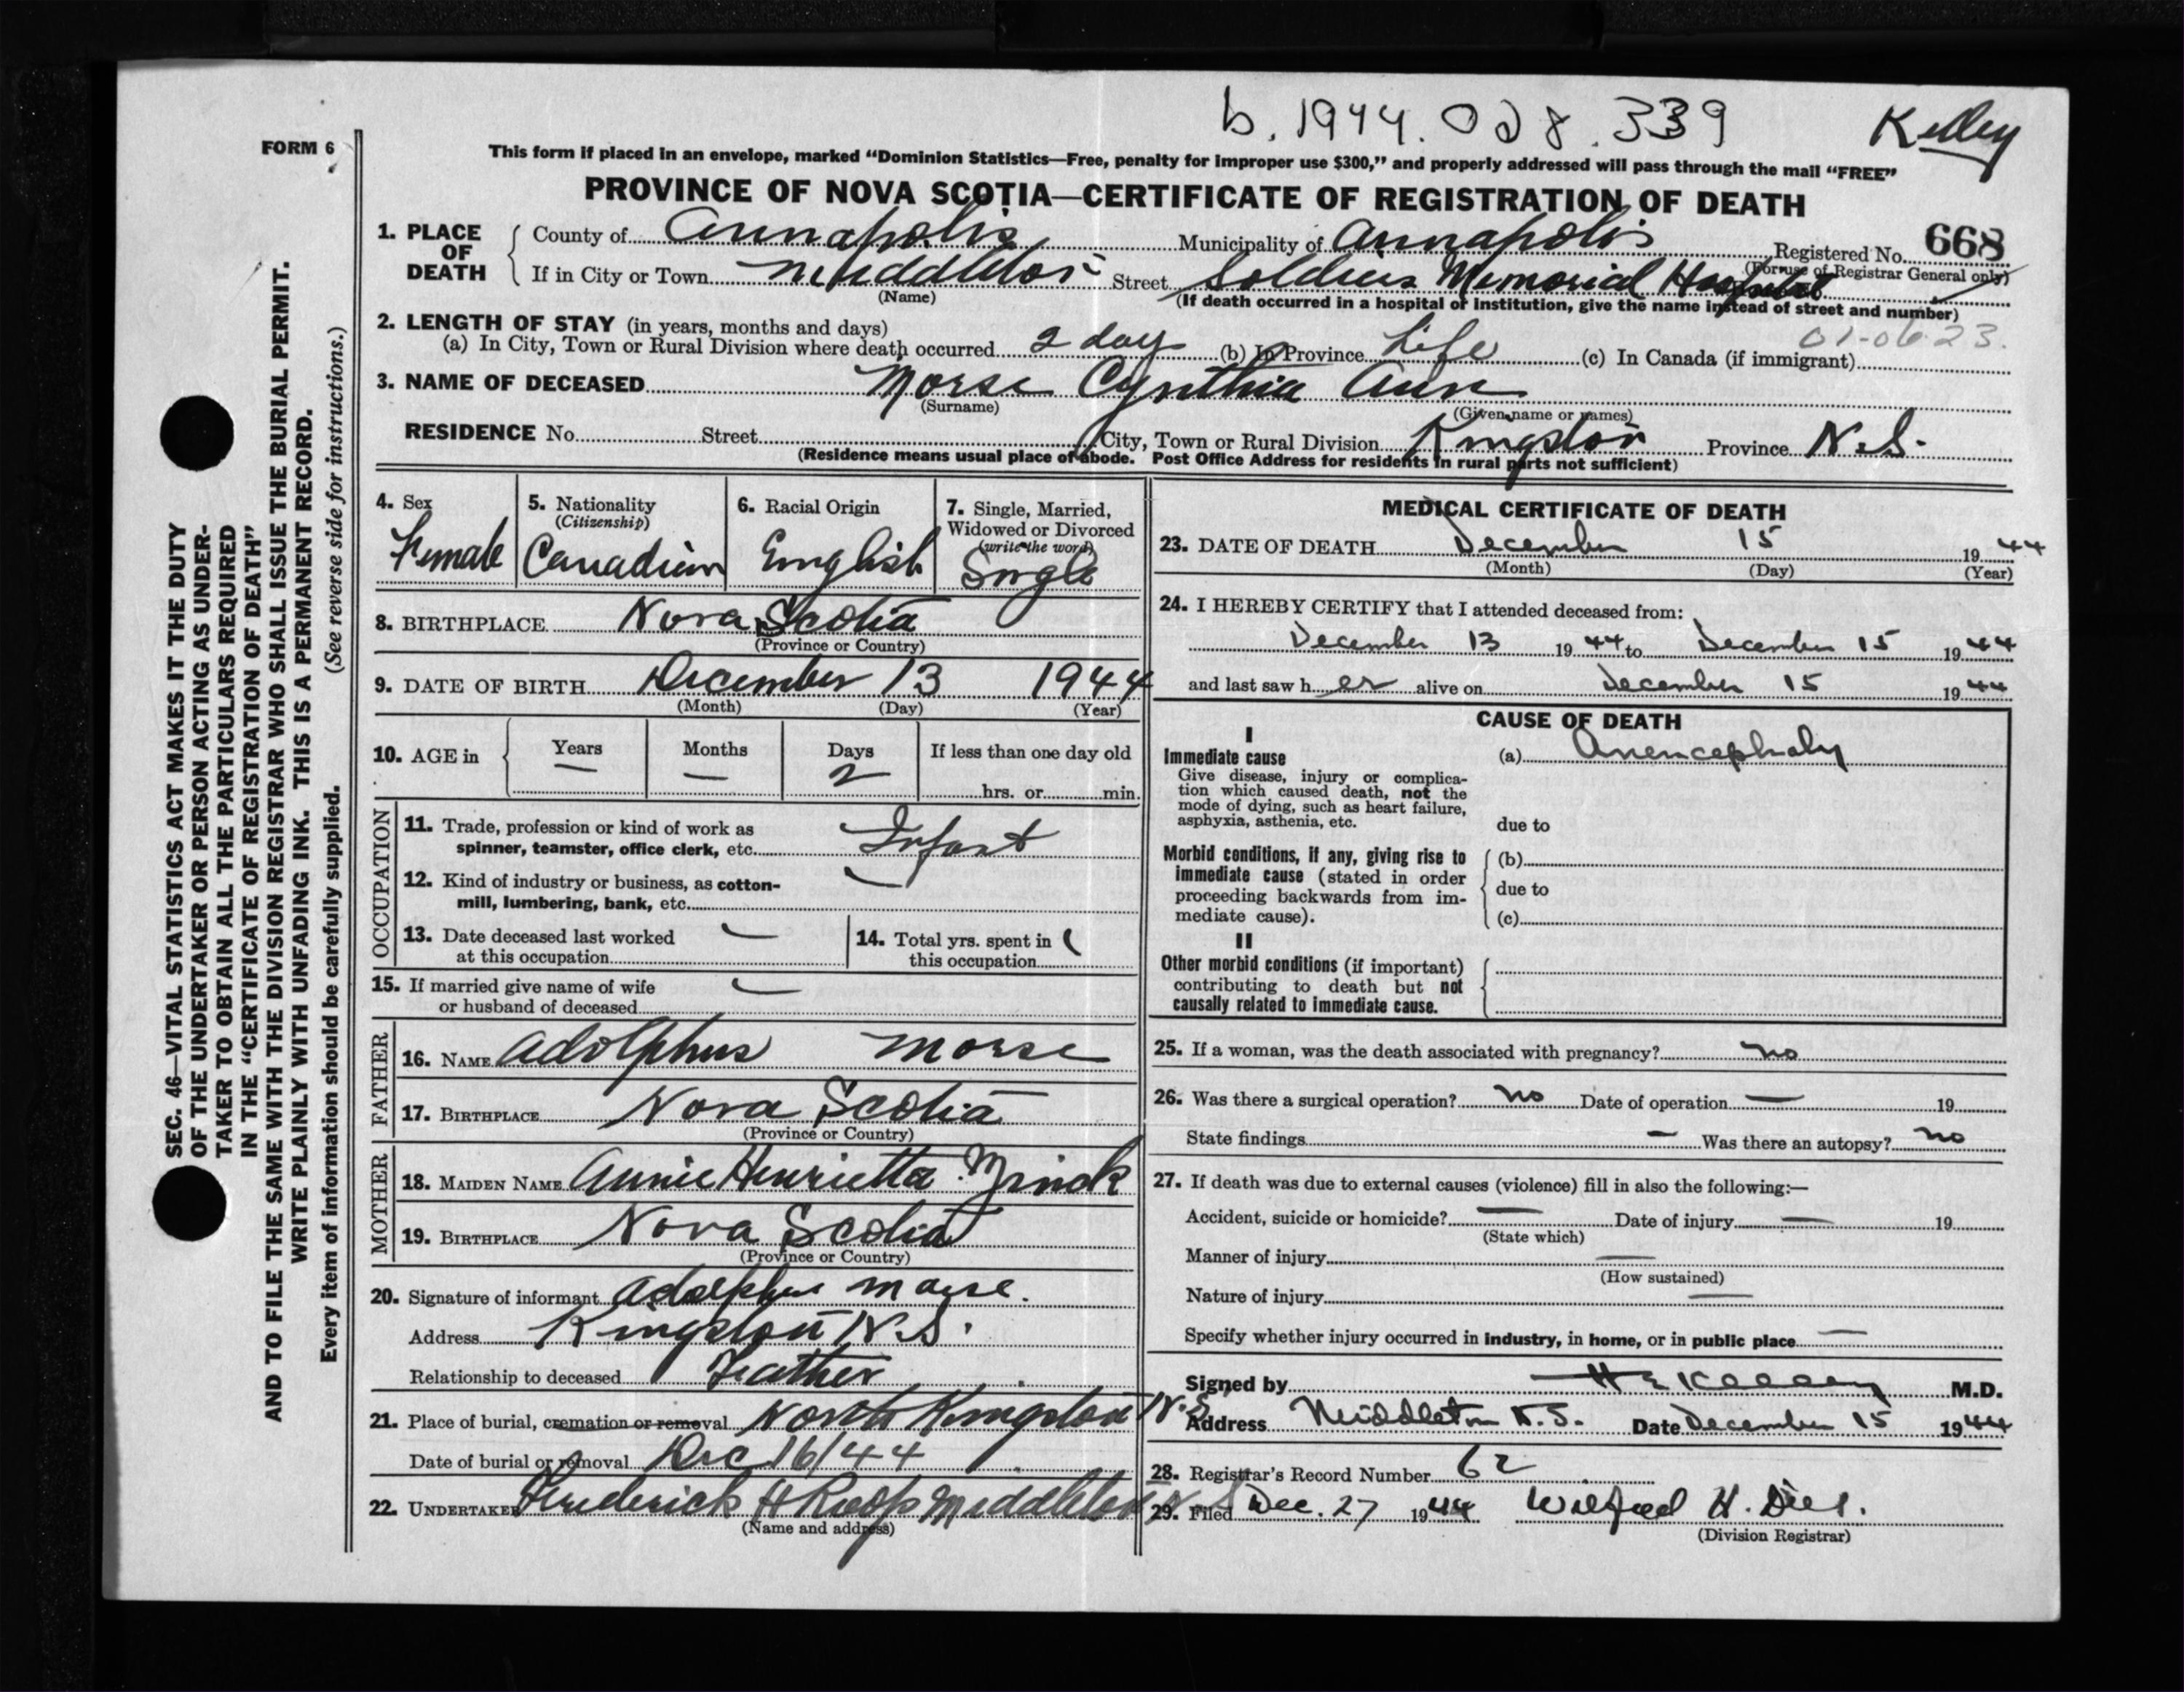 b. 1944. 028. 339
Kelley
FORM 6
This form if placed in an envelope, marked “Dominion Statistics—Free, penalty for improper use $300,” and properly addressed will pass through the mail “FREE”
PROVINCE OF NOVA SCOTIA—CERTIFICATE OF REGISTRATION OF DEATH
1. PLACE OF DEATH County of Annapolis Municipality of Annapolis Registered No. 668
(For use of Registrar General only)
If in City or Town Middleton Street Soldiers Memorial Hospital
(Name) (If death occurred in a hospital or institution, give the name instead of street and number)
2. LENGTH OF STAY (in years, months and days) 01-0623.
(a) In City, Town or Rural Division where death occurred 2 days (b) In Province Life (c) In Canada (if immigrant)
3. NAME OF DECEASED Morse Cynthia Ann
(Surname) (Given name or names)
RESIDENCE No. Street City, Town or Rural Division Kingston Province N.S.
(Residence means usual place of abode. Post Office Address for residents in rural parts not sufficient)
4. Sex Female
5. Nationality (Citizenship) Canadian
6. Racial Origin English
7. Single, Married, Widowed or Divorced (write the word) Single
8. BIRTHPLACE Nova Scotia
(Province or Country)
9. DATE OF BIRTH December 13 1944
(Month) (Day) (Year)
10. AGE in Years — Months — Days 2 If less than one day old hrs. or min.
OCCUPATION
11. Trade, profession or kind of work as spinner, teamster, office clerk, etc. Infant
12. Kind of industry or business, as cotton-mill, lumbering, bank, etc. —
13. Date deceased last worked at this occupation —
14. Total yrs. spent in this occupation
15. If married give name of wife or husband of deceased —
FATHER
16. NAME Adolphus Morse
17. BIRTHPLACE Nova Scotia
(Province or Country)
MOTHER
18. MAIDEN NAME Annie Henrietta Zinck
19. BIRTHPLACE Nova Scotia
(Province or Country)
20. Signature of informant Adolphus Morse.
Address Kingston N.S.
Relationship to deceased Feather
21. Place of burial, cremation or removal North Kingston N.S.
Date of burial or removal Dec 16/44
22. UNDERTAKER Frederick H Roop Middleton N S
(Name and address)
MEDICAL CERTIFICATE OF DEATH
23. DATE OF DEATH December 15 1944
(Month) (Day) (Year)
24. I HEREBY CERTIFY that I attended deceased from:
December 13 1944 to December 15 1944
and last saw her alive on December 15 1944
CAUSE OF DEATH
I
Immediate cause (a) Anencephaly
Give disease, injury or complica-
tion which caused death, not the
mode of dying, such as heart failure,
asphyxia, asthenia, etc.
due to
Morbid conditions, if any, giving rise to (b)
immediate cause (stated in order
proceeding backwards from im- due to
mediate cause). (c)
II
Other morbid conditions (if important)
contributing to death but not
causally related to immediate cause.
25. If a woman, was the death associated with pregnancy? no
26. Was there a surgical operation? no Date of operation — 19
State findings — Was there an autopsy? no
27. If death was due to external causes (violence) fill in also the following:—
Accident, suicide or homicide? — Date of injury — 19
(State which)
Manner of injury —
(How sustained)
Nature of injury —
Specify whether injury occurred in industry, in home, or in public place —
Signed by H E Kelley M.D.
Address Middleton N.S. Date December 15 1944
28. Registrar's Record Number 62
29. Filed Dec. 27 1944 Wilfred H.
(Division Registrar)
SEC. 46—VITAL STATISTICS ACT MAKES IT THE DUTY
OF THE UNDERTAKER OR PERSON ACTING AS UNDER-
TAKER TO OBTAIN ALL THE PARTICULARS REQUIRED
IN THE “CERTIFICATE OF REGISTRATION OF DEATH”
AND TO FILE THE SAME WITH THE DIVISION REGISTRAR WHO SHALL ISSUE THE BURIAL PERMIT.
WRITE PLAINLY WITH UNFADING INK. THIS IS A PERMANENT RECORD.
Every item of information should be carefully supplied. (See reverse side for instructions.)